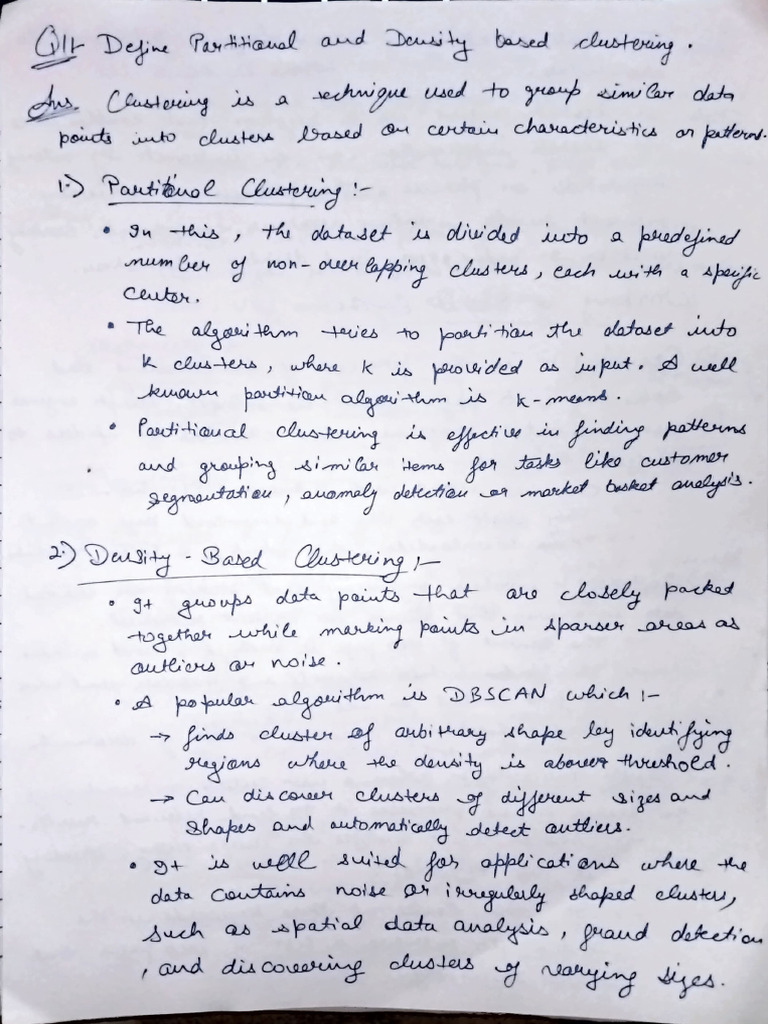 Q1:- Define Partitional and Density based clustering.
Ans. Clustering is a technique used to group similar data
points into clusters based on certain characteristics or patterns.
1.) Partitional Clustering :-
• In this, the dataset is divided into a predefined
number of non-overlapping clusters, each with a specific
center.
• The algorithm tries to partition the dataset into
K clusters, where K is provided as input. A well
known partition algorithm is k-means.
• Partitional clustering is effective in finding patterns
and grouping similar items for tasks like customer
segmentation, anomaly detection or market basket analysis.
2.) Density-Based Clustering :-
• It groups data points that are closely packed
together while marking points in sparser areas as
outliers or noise.
• A popular algorithm is DBSCAN which :-
→ finds cluster of arbitrary shape by identifying
regions where the density is above threshold.
→ Can discover clusters of different sizes and
shapes and automatically detect outliers.
• It is well suited for applications where the
data contains noise or irregularly shaped clusters,
such as spatial data analysis, fraud detection
, and discovering clusters of varying sizes.